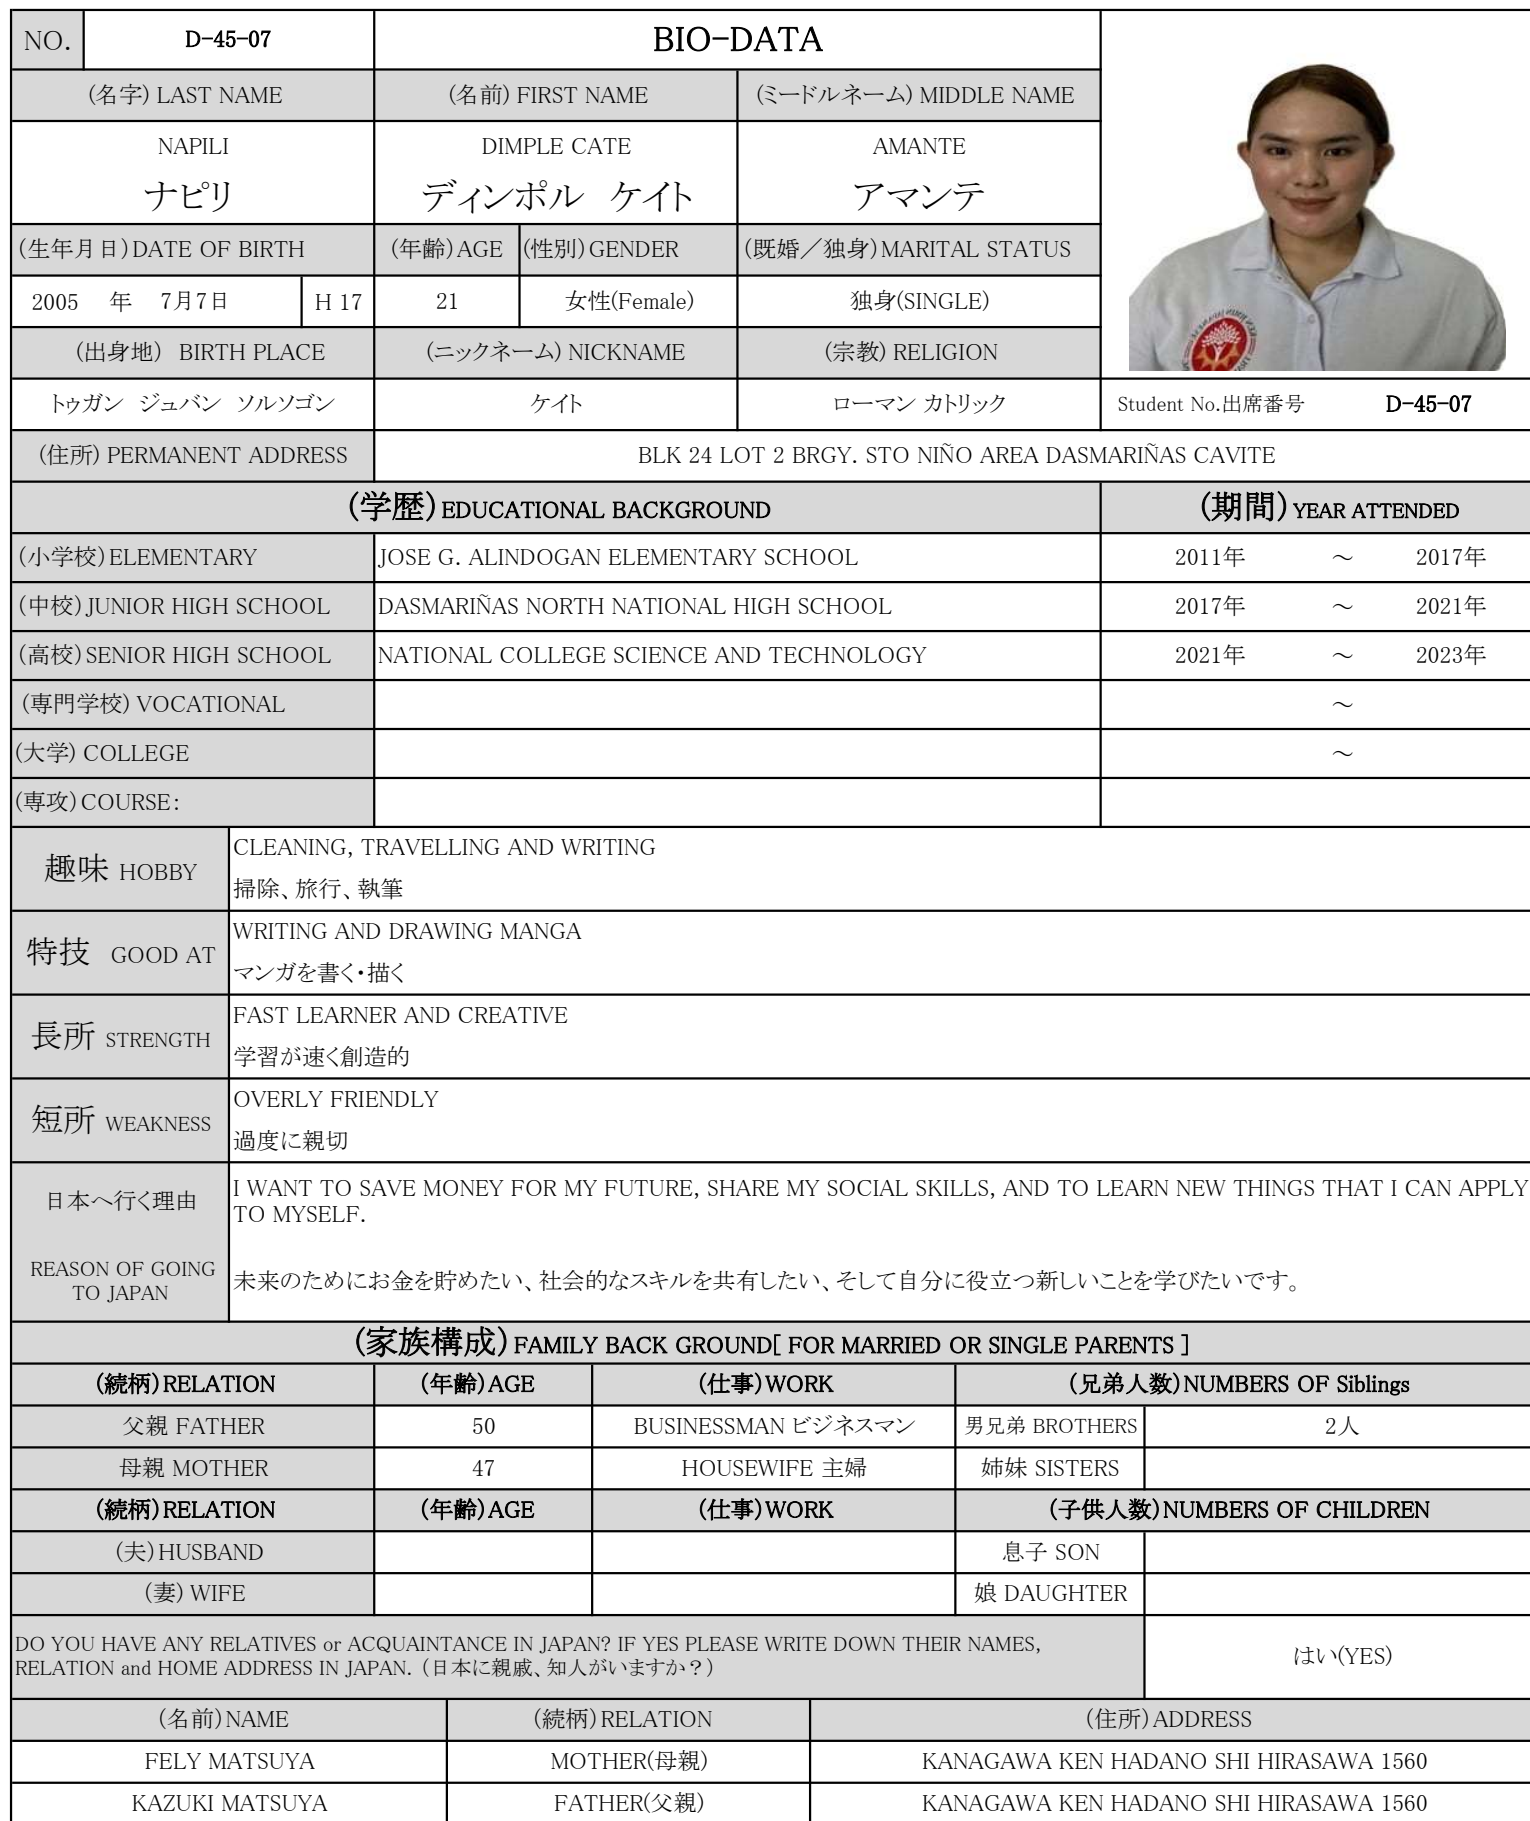 NO. D-45-07 BIO-DATA
(名字) LAST NAME (名前) FIRST NAME (ミードルネーム) MIDDLE NAME
NAPILI DIMPLE CATE AMANTE
ナピリ ディンポル ケイト アマンテ
(生年月日) DATE OF BIRTH (年齢) AGE (性別) GENDER (既婚／独身) MARITAL STATUS
2005 年 7月7日 H 17 21 女性(Female) 独身(SINGLE)
(出身地) BIRTH PLACE (ニックネーム) NICKNAME (宗教) RELIGION
トゥガン ジュバン ソルソゴン ケイト ローマン カトリック Student No.出席番号 D-45-07
(住所) PERMANENT ADDRESS BLK 24 LOT 2 BRGY. STO NIÑO AREA DASMARIÑAS CAVITE
(学歴) EDUCATIONAL BACKGROUND (期間) YEAR ATTENDED
(小学校) ELEMENTARY JOSE G. ALINDOGAN ELEMENTARY SCHOOL 2011年 ～ 2017年
(中校) JUNIOR HIGH SCHOOL DASMARIÑAS NORTH NATIONAL HIGH SCHOOL 2017年 ～ 2021年
(高校) SENIOR HIGH SCHOOL NATIONAL COLLEGE SCIENCE AND TECHNOLOGY 2021年 ～ 2023年
(専門学校) VOCATIONAL ～
(大学) COLLEGE ～
(専攻) COURSE:
趣味 HOBBY
CLEANING, TRAVELLING AND WRITING
掃除、旅行、執筆
特技 GOOD AT
WRITING AND DRAWING MANGA
マンガを書く・描く
長所 STRENGTH
FAST LEARNER AND CREATIVE
学習が速く創造的
短所 WEAKNESS
OVERLY FRIENDLY
過度に親切
日本へ行く理由
REASON OF GOING
TO JAPAN
I WANT TO SAVE MONEY FOR MY FUTURE, SHARE MY SOCIAL SKILLS, AND TO LEARN NEW THINGS THAT I CAN APPLY
TO MYSELF.
未来のためにお金を貯めたい、社会的なスキルを共有したい、そして自分に役立つ新しいことを学びたいです。
(家族構成) FAMILY BACK GROUND[ FOR MARRIED OR SINGLE PARENTS ]
(続柄) RELATION (年齢) AGE (仕事) WORK (兄弟人数) NUMBERS OF Siblings
父親 FATHER 50 BUSINESSMAN ビジネスマン 男兄弟 BROTHERS 2人
母親 MOTHER 47 HOUSEWIFE 主婦 姉妹 SISTERS
(続柄) RELATION (年齢) AGE (仕事) WORK (子供人数) NUMBERS OF CHILDREN
(夫) HUSBAND 息子 SON
(妻) WIFE 娘 DAUGHTER
DO YOU HAVE ANY RELATIVES or ACQUAINTANCE IN JAPAN? IF YES PLEASE WRITE DOWN THEIR NAMES,
RELATION and HOME ADDRESS IN JAPAN. (日本に親戚、知人がいますか？) はい(YES)
(名前) NAME (続柄) RELATION (住所) ADDRESS
FELY MATSUYA MOTHER(母親) KANAGAWA KEN HADANO SHI HIRASAWA 1560
KAZUKI MATSUYA FATHER(父親) KANAGAWA KEN HADANO SHI HIRASAWA 1560